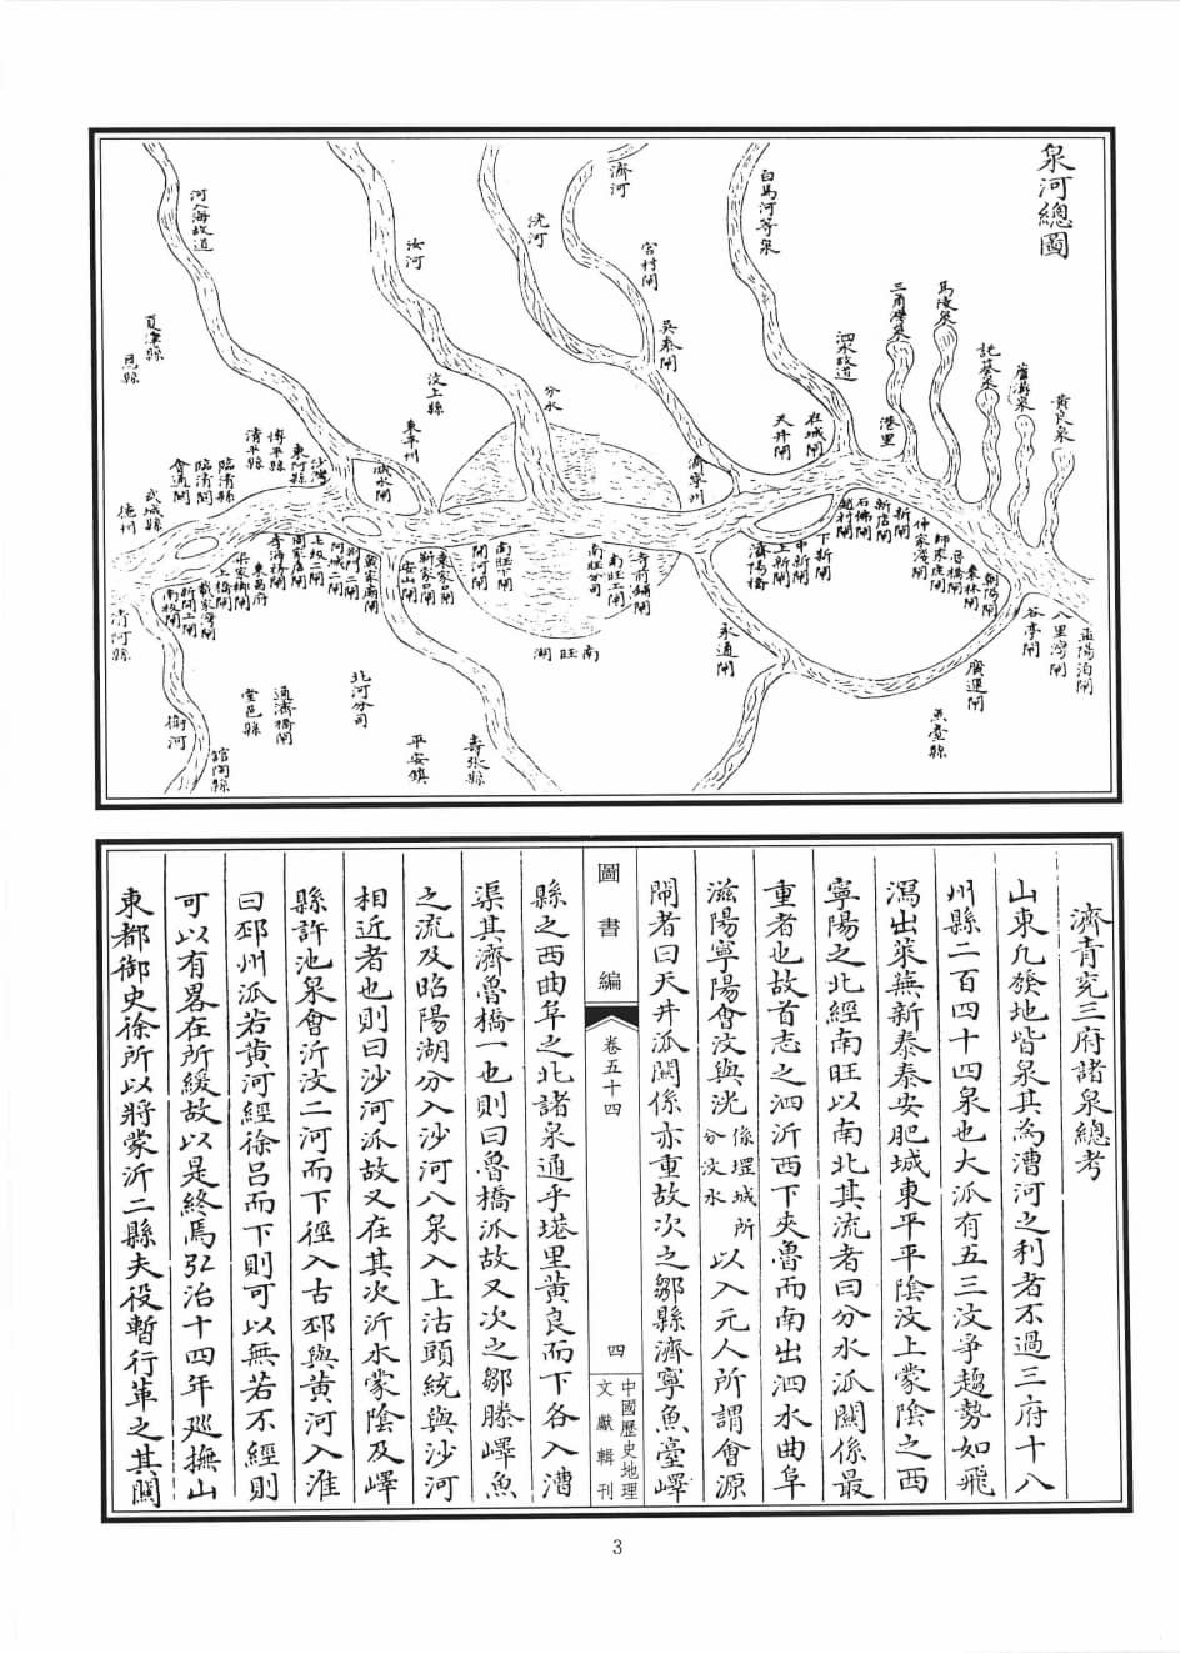 泉河總圖
黃良泉
蘆溝泉
託基泉
馬陵泉
三角灣泉
港里
泗水故道
白馬河等泉
在城閘
天井閘
濟寧州
吳泰閘
宮村閘
濟河
洸河
分水
汶上縣
汝河
東平州
濟水閘
河入海故道
沙灣
東阿縣
博平縣
清平縣
臨清縣
臨清閘
會通閘
武城縣
德州
夏津縣
恩縣
孟陽泊閘
八里灣閘
谷亭閘
廣運閘
魚臺縣
棗林閘
魯橋閘
師家庄閘
仲家淺閘
新閘
新店閘
石佛閘
趙村閘
下新閘
中新閘
上新閘
濟陽橋
永通閘
寺前鋪閘
南旺上閘
南旺分司
南旺湖
南旺下閘
開河閘
袁家口閘
靳家口閘
安山閘
戴家廟閘
荊門二閘
阿城二閘
七級二閘
周家店閘
李海務閘
東昌府
梁家鄉閘
土橋閘
戴家灣閘
新開上閘
南板閘
清河縣
衛河
館陶縣
堂邑縣
通濟橋閘
北河分司
平安鎮
壽張縣
濟青兖三府諸泉總考
山東凡發地皆泉其為漕河之利者不過三府十八
州縣二百四十四泉也大派有五三汶爭趨勢如飛
瀉出萊蕪新泰泰安肥城東平平陰汶上蒙陰之西
寧陽之北經南旺以南北其流者曰分水派關係最
重者也故首志之泗沂西下夾魯而南出泗水曲阜
滋陽寧陽會汶與洸係堽城所分汶水以入元人所謂會源
閘者曰天井派關係亦重故次之鄒縣濟寧魚臺嶧
縣之西曲阜之北諸泉通乎塔里黃良而下各入漕
渠其濟魯橋一也則曰魯橋派故又次之鄒滕嶧魚
之流及昭陽湖分入沙河八泉入上沽頭統與沙河
相近者也則曰沙河派故又在其次沂水蒙陰及嶧
縣許池泉會沂汶二河而下徑入古邳與黃河入淮
曰邳州派若黃河經徐呂而下則可以無若不經則
可以有畧在所緩故以是終焉弘治十四年廵撫山
東都御史徐所以將蒙沂二縣夫役暫行革之其關
圖書編
卷五十四
四
中國歷史地理
文獻輯刊
3